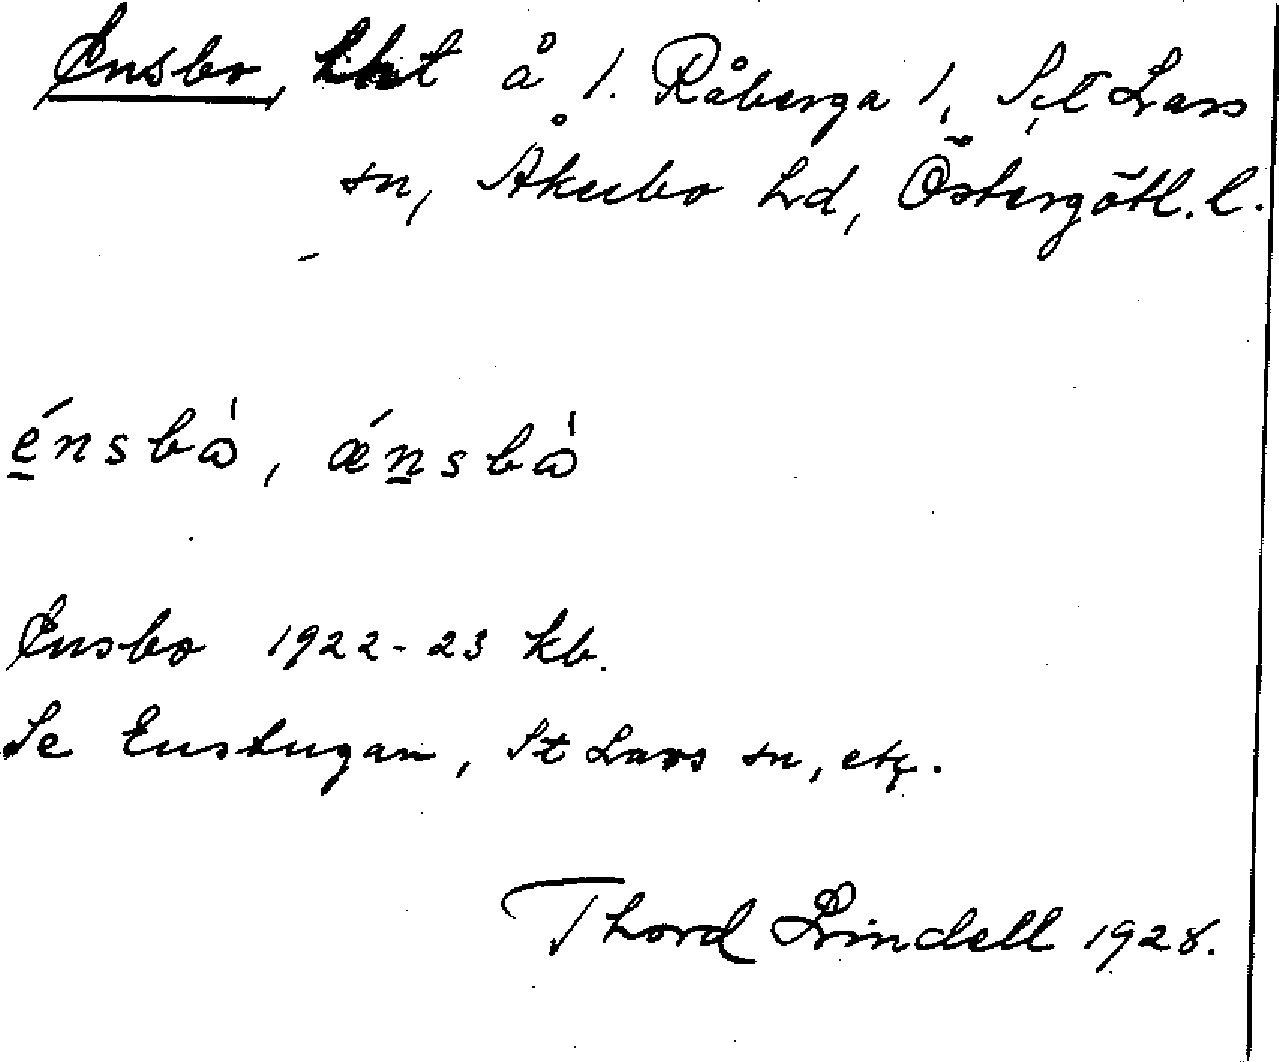 Ensbo, lht å 1. Råberga 1, S:t Lars
sn, Åkerbo hd, Östergötl. l.
énsbὼ, ǽnsbὼ
Ensbo 1922-23 kb.
Se Enstugan, St Lars sn, etc.
Thord Lindell 1928.